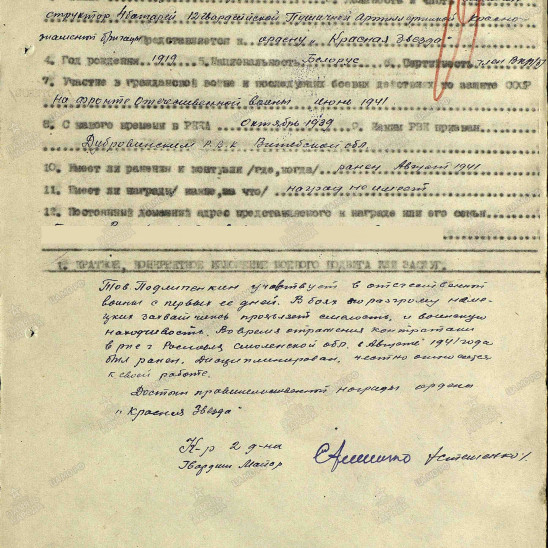 структор 4батареи 12Гвардейской Пушечной Артиллерийской Красно-
знаменной бригады Представляется к ордену "Красная Звезда"
4. Год рождения 1919 5. Национальность Белорус 6. Партийность член ВКП/б/
7. Участие в гражданской войне и последующих боевых действиях по защите СССР
На фронте Отечественной войны июнь 1941
8. С какого времени в РККА Октябрь 1939 9. Каким РВК призван
Дубровинским Р.В.К. Витебской обл.
10. Имеет ли ранения и контузии /где, когда/ ранен Август 1941
11. Имеет ли награды/ какие, за что/ наград не имеет
12. Постоянный домашний адрес представляемого к награде или его семьи
1. КРАТКОЕ, КОНКРЕТНОЕ ИЗЛОЖЕНИЕ БОЕВОГО ПОДВИГА ИЛИ ЗАСЛУГ.
Тов участвует в отечественной
войне с первых её дней. В боях по разгрому неме-
цких захватчиков проявляет смелость, и воинскую
находчивость. Во время отражения контратаки
в р-не г Рославль Смоленской обл. в Августе 1941 года
был ранен. Дисциплинирован, честно относится
к своей работе.
Достоин правительственной награды ордена
"Красная Звезда"
К-р 2 д-на
Гвардии Майор